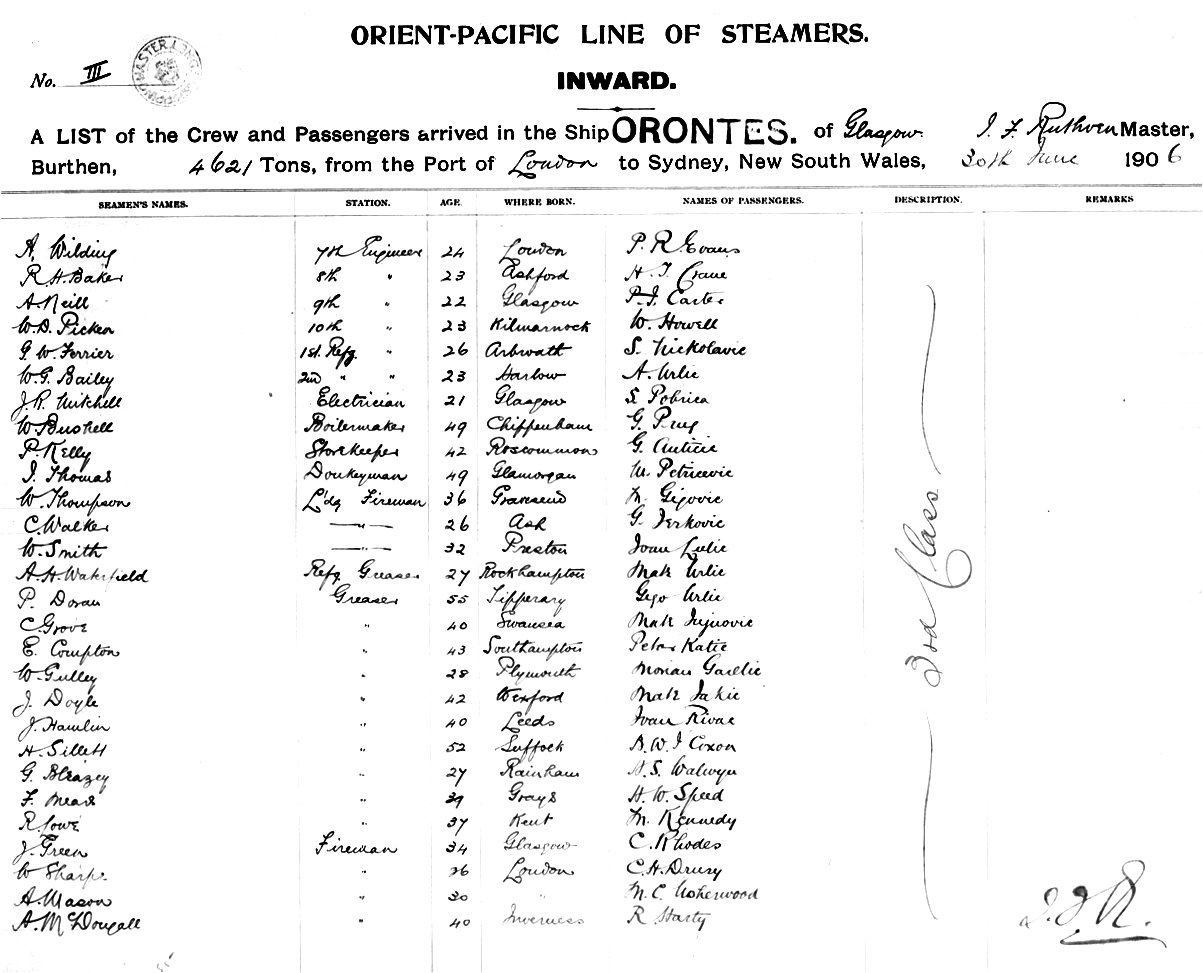 ORIENT-PACIFIC LINE OF STEAMERS.
No. III
INWARD.
A LIST of the Crew and Passengers arrived in the Ship ORONTES. of Glasgow. J. F. Ruthven Master,
Burthen, 4621 Tons, from the Port of London to Sydney, New South Wales, 30th June 1906
SEAMEN'S NAMES. STATION. AGE. WHERE BORN. NAMES OF PASSENGERS. DESCRIPTION. REMARKS
A. Wilding 7th Engineer 24 London P. R. Evans
R. H. Baker 8th " 23 Ashford H. J. Crane
A. Neill 9th " 22 Glasgow P. J. Carter
W. D. Picken 10th " 23 Kilmarnock W. Howell
G. W. Ferrier 1st. Refg " 26 Arbroath S. Nickolavic
W. G. Bailey 2nd " " 23 Harlow A. Urlic
J. R. Mitchell Electrician 21 Glasgow S. Pobrica
W. Bushell Boilermaker 49 Chippenham G.
P. Kelly Storekeeper 42 Roscommon G. Anticic
J. Thomas Donkeyman 49 Glamorgan M. Petricevic
W. Thompson L'dg Fireman 36 Gravesend M. Gigovic
C. Walker —"— 26 Ash G. Jerkovic
W. Smith —"— 32 Preston Ivan Lulic
A. H. Wakefield Refg Greaser 27 Rockhampton Mate Urlic
P. Doran Greaser 55 Tipperary Grgo Urlic
C. Grove " 40 Swansea Mate
E. Compton " 43 Southampton Petar Katic
W. Gulley " 28 Plymouth Morian
J. Doyle " 42 Wexford Mate Jakic
J. Hamlin " 40 Leeds Ivan Rivac
H. Sillett " 52 Suffock B. W. J. Coxon
G. Bleazey " 27 Rainham N. S. Walwyn
F. Mead " 39 Grays H. W. Speed
R. Lowe " 37 Kent M. Kennedy
J. Green Fireman 34 Glasgow C. Rhodes
W. Sharpe " 26 London C. H. Drury
A. Mason " 30 " M. C. Usherwood
A. McDougall " 40 Inverness R. Harty
3rd Class
J. F. R.